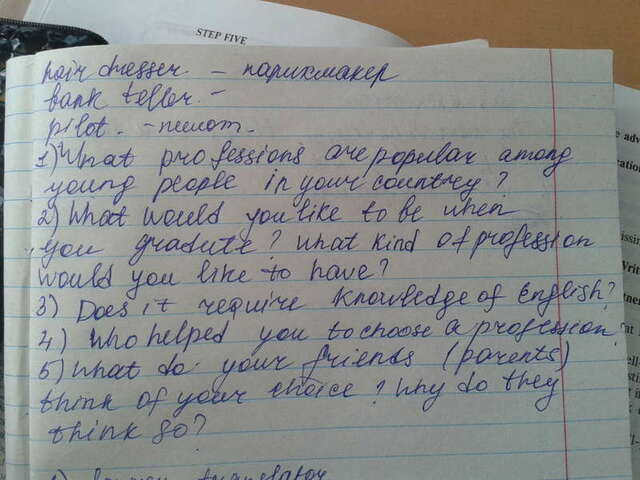 STEP FIVE
hair dresser - парикмахер
bank teller -
pilot. - пилот.
1) What professions are popular among
young people in your country?
2) What would you like to be when
you gradute? What kind of profession
would you like to have?
3) Does it require knowledge of English?
4) Who helped you to choose a profession
5) What do your friends (parents)
think of your choice? Why do they
think so?
translator